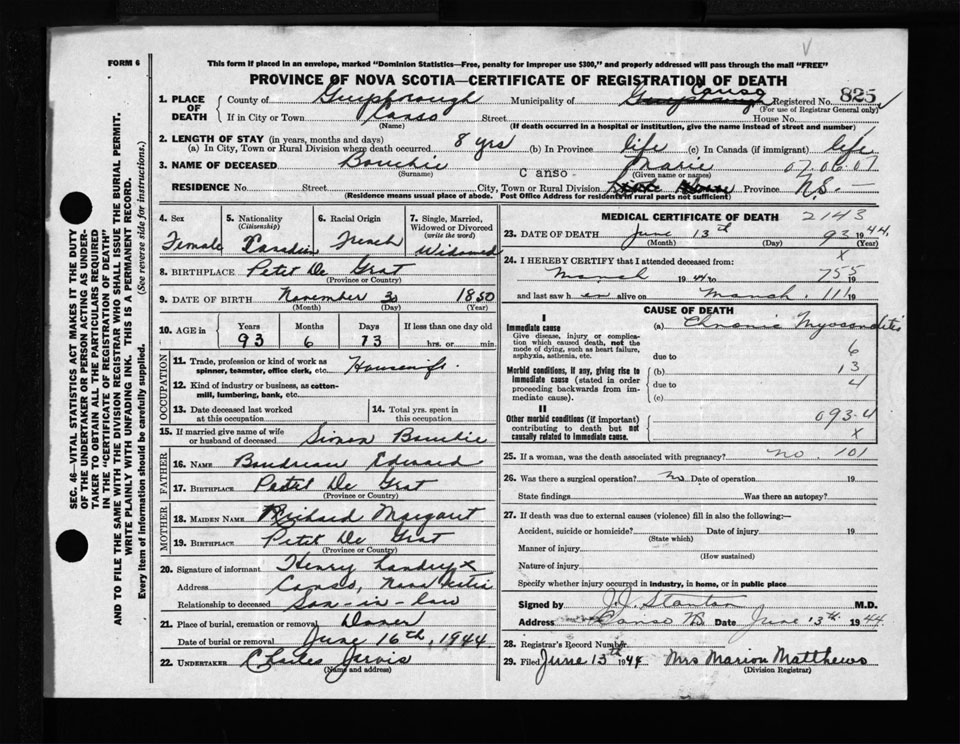 FORM 6
This form if placed in an envelope, marked "Dominion Statistics—Free, penalty for improper use $300," and properly addressed will pass through the mail "FREE"
PROVINCE OF NOVA SCOTIA—CERTIFICATE OF REGISTRATION OF DEATH
1. PLACE OF DEATH County of Guysborough Municipality of Canso Registered No. 825
(For use of Registrar General only)
If in City or Town Canso Street House No.
(Name) (If death occurred in a hospital or institution, give the name instead of street and number)
2. LENGTH OF STAY (in years, months and days)
(a) In City, Town or Rural Division where death occurred 8 yrs (b) In Province life (c) In Canada (if immigrant) life
3. NAME OF DECEASED Bouchie Marie 07.06.07
(Surname) (Given name or names)
RESIDENCE No. Street City, Town or Rural Division Canso Province N.S.
(Residence means usual place of abode. Post Office Address for residents in rural parts not sufficient)
4. Sex Female
5. Nationality (Citizenship) Canadien
6. Racial Origin French
7. Single, Married, Widowed or Divorced (write the word) Widowed
8. BIRTHPLACE Petit De Grat
(Province or Country)
9. DATE OF BIRTH November 30 1850
(Month) (Day) (Year)
10. AGE in Years Months Days If less than one day old
93 6 13 hrs. or min.
OCCUPATION
11. Trade, profession or kind of work as spinner, teamster, office clerk, etc. Housewife.
12. Kind of industry or business, as cotton-mill, lumbering, bank, etc.
13. Date deceased last worked at this occupation
14. Total yrs. spent in this occupation
15. If married give name of wife or husband of deceased Simon Bouchie
FATHER
16. NAME Boudreau Edward
17. BIRTHPLACE Petit De Grat
(Province or Country)
MOTHER
18. MAIDEN NAME Richard Margaret
19. BIRTHPLACE Petit De Grat
(Province or Country)
20. Signature of informant Henry Landry x
Address Canso, Nova Scotia
Relationship to deceased Son-in-law
21. Place of burial, cremation or removal Dover
Date of burial or removal June 16th, 1944
22. UNDERTAKER Charles Jarvis
(Name and address)
MEDICAL CERTIFICATE OF DEATH 2143
23. DATE OF DEATH June 13th 93 1944
(Month) (Day) (Year)
24. I HEREBY CERTIFY that I attended deceased from: x
March 1944 to 755 19
and last saw h er alive on March. 111 19
CAUSE OF DEATH
I
Immediate cause (a) Chronic Myocarditis
Give disease, injury or complication which caused death, not the mode of dying, such as heart failure, asphyxia, asthenia, etc.
due to 6
Morbid conditions, if any, giving rise to immediate cause (stated in order proceeding backwards from immediate cause).
(b) 13
due to 4
(c)
II
Other morbid conditions (if important) contributing to death but not causally related to immediate cause.
093-4
x
25. If a woman, was the death associated with pregnancy? no. 101
26. Was there a surgical operation? no Date of operation 19
State findings Was there an autopsy?
27. If death was due to external causes (violence) fill in also the following:
Accident, suicide or homicide? Date of injury 19
(State which)
Manner of injury
(How sustained)
Nature of injury
Specify whether injury occurred in industry, in home, or in public place
Signed by J.J. Stanton M.D.
Address Canso N.S. Date June 13th 1944
28. Registrar's Record Number
29. Filed June 13th 1944 Mrs Marion Matthews
(Division Registrar)
SEC. 46—VITAL STATISTICS ACT MAKES IT THE DUTY
OF THE UNDERTAKER OR PERSON ACTING AS UNDER-
TAKER TO OBTAIN ALL THE PARTICULARS REQUIRED
IN THE "CERTIFICATE OF REGISTRATION OF DEATH"
AND TO FILE THE SAME WITH THE DIVISION REGISTRAR WHO SHALL ISSUE THE BURIAL PERMIT.
WRITE PLAINLY WITH UNFADING INK. THIS IS A PERMANENT RECORD.
Every item of information should be carefully supplied. (See reverse side for instructions.)